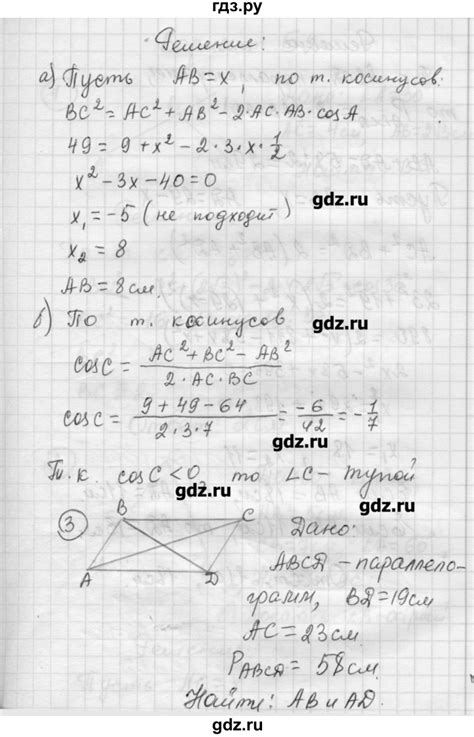 гдз.ру
Решение:
а) Пусть AB = x, по т. косинусов.
BC² = AC² + AB² - 2·AC·AB·cosA
49 = 9 + x² - 2·3·x·1/2
x² - 3x - 40 = 0
gdz.ru
x₁ = -5 (не подходит)
x₂ = 8
AB = 8см.
б) По т. косинусов
cosC = (AC² + BC² - AB²)/(2·AC·BC)
gdz.ru
cosC = (9 + 49 - 64)/(2·3·7) = -6/42 = -1/7
gdz.ru
Т.к. cosC < 0, то ∠C - тупой
gdz.ru
3
B C
A D
Дано:
ABCD - параллело-
грамм, BD = 19см
AC = 23см
gdz.ru
P ABCD = 58см.
Найти: AB и AD.
gdz.ru